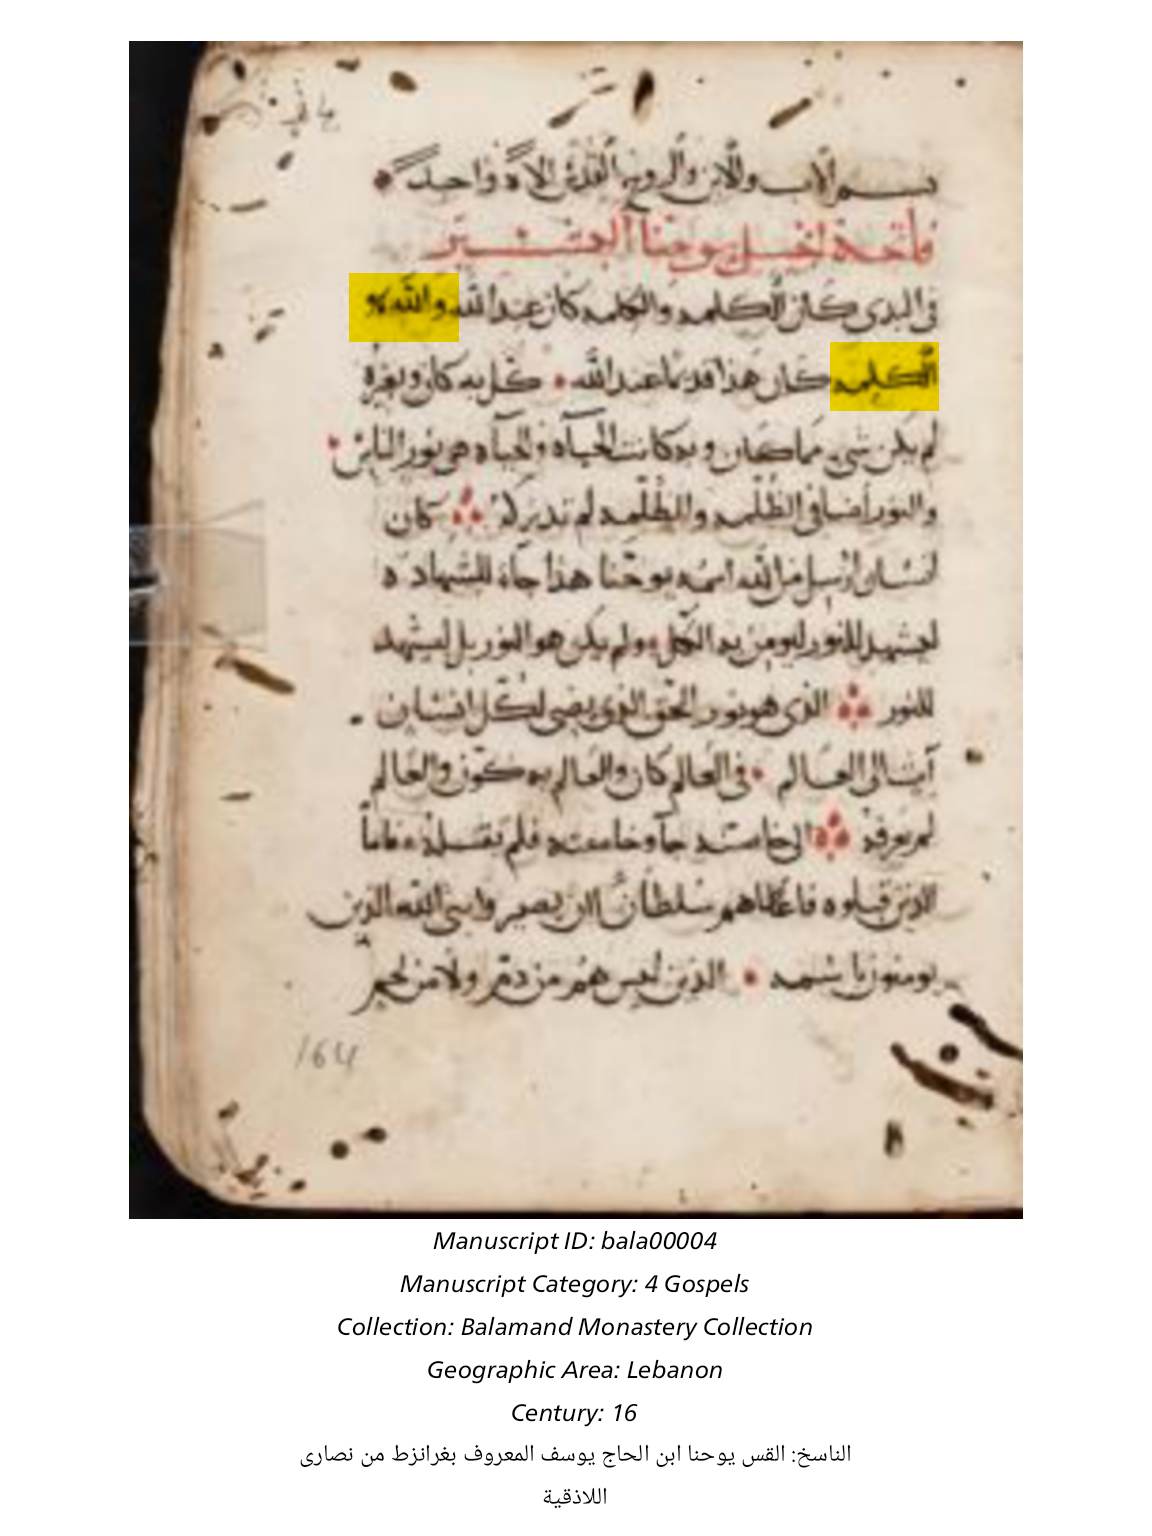 بسم الاب والابن والروح القدس الاه واحد
فاتحة انجيل يوحنا البشير
فى البدى كان الكلمه والكلمه كان عند الله والله هو
الكلمه كان هذا قديما عند الله كل به كان وبغيره
لم يكن شى مما كان وبه كانت الحياه والحياه هى نور الناس
والنور اضا فى الظلمه والظلمه لم تدركه كان
انسان ارسل من الله اسمه يوحنا هذا جاء للشهاده
ليشهد للنور ليومن به الكل ولم يكن هو النور بل ليشهد
للنور الذى هو نور الحق الذى يضى لكل انسان
آت الى العالم فى العالم كان والعالم به كون والعالم
لم يعرفه الى خاصته جآ وخاصته فلم تقبله فاما
الذين قبلوه فاعطاهم سلطان ان يصيروا بنى الله الذين
يومنون باسمه الذين ليس هم من دم ولا من لحم
164
Manuscript ID: bala00004
Manuscript Category: 4 Gospels
Collection: Balamand Monastery Collection
Geographic Area: Lebanon
Century: 16
الناسخ: القس يوحنا ابن الحاج يوسف المعروف بغرانزط من نصارى
اللاذقية